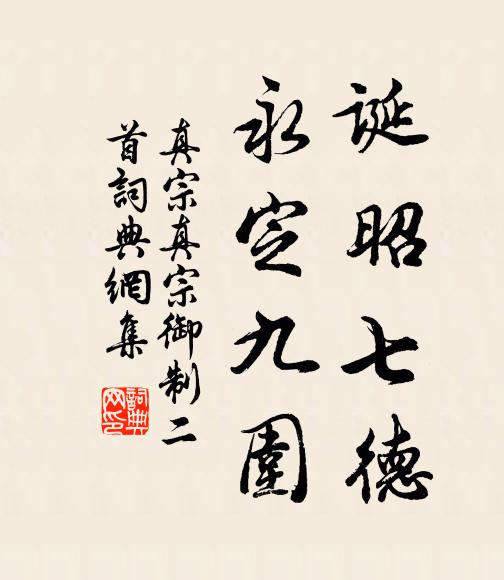 誕昭七德
永定九圍
真宗真宗御制二
首詞典網集
詞典
网印